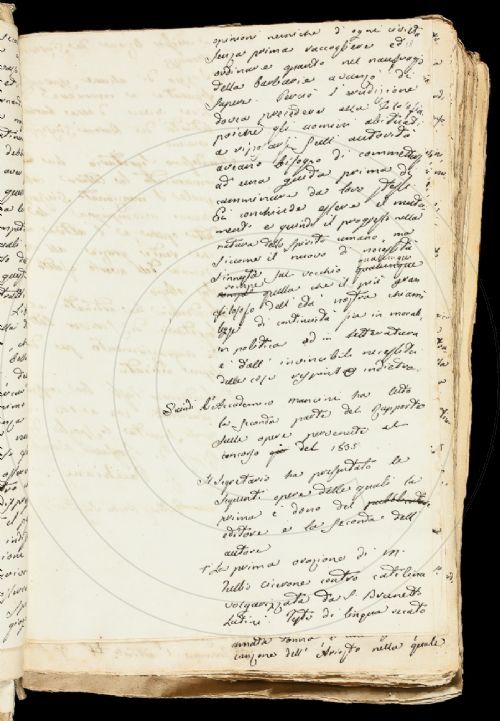 opinioni nemiche d'ogni civiltà
senza prima raccogliere ed
ordinare quanto nel naufragio
della barbarie avanzò di
sapere. Perciò l'erudizione
dovea precedere alla filosofia
poichè gli uomini abituati
a riposarsi sull'autorità
aveano bisogno di commettersi
ad una guida prima di
camminare da loro stessi
E conchiude essere il
e quindi il progresso nella
natura dello spirito umano, ma
siccome il nuovo di necessità
s'innesta sul vecchio qualunque
quella che il più gran
filosofo dell'età nostra chiamò
legge di continuità sia in morale,
in politica ed in letteratura
è dall'invincibile necessità
delle cose respinto indietro.
Quindi l'Accademico Mancini ha letto
la seconda parte del Rapporto
sulle opere pervenute al
concorso del 1835
Il Segretario ha presentato le
seguenti opere delle quali la
prima è dono del
editore e la seconda dell'
autore
1° La prima orazione di M.
Tullio Cicerone contro Catilina
volgarizzata da S. Brunetto
Latini. Testo di lingua recato
canzone dell'Ariosto nella quale